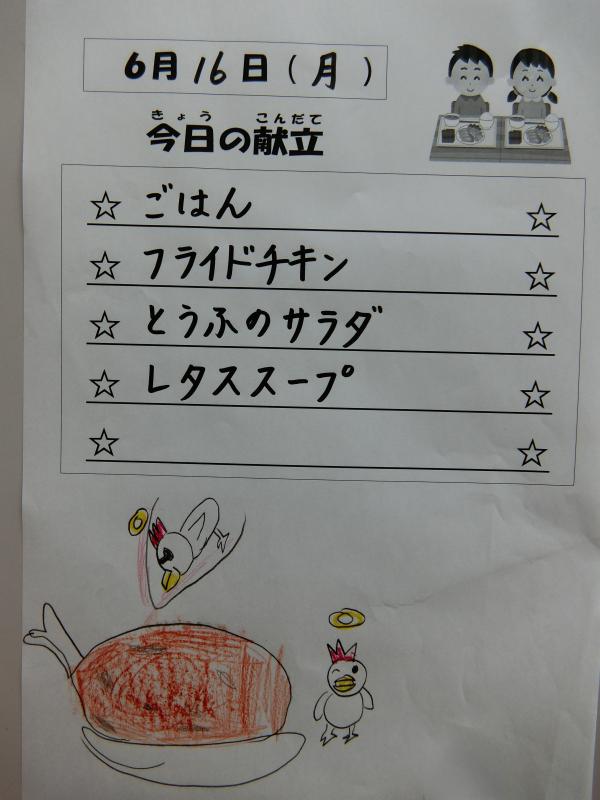 6月16日(月)
きょう こんだて
今日の献立
☆ ごはん ☆
☆ フライドチキン ☆
☆ とうふのサラダ ☆
☆ レタススープ ☆
☆ ☆